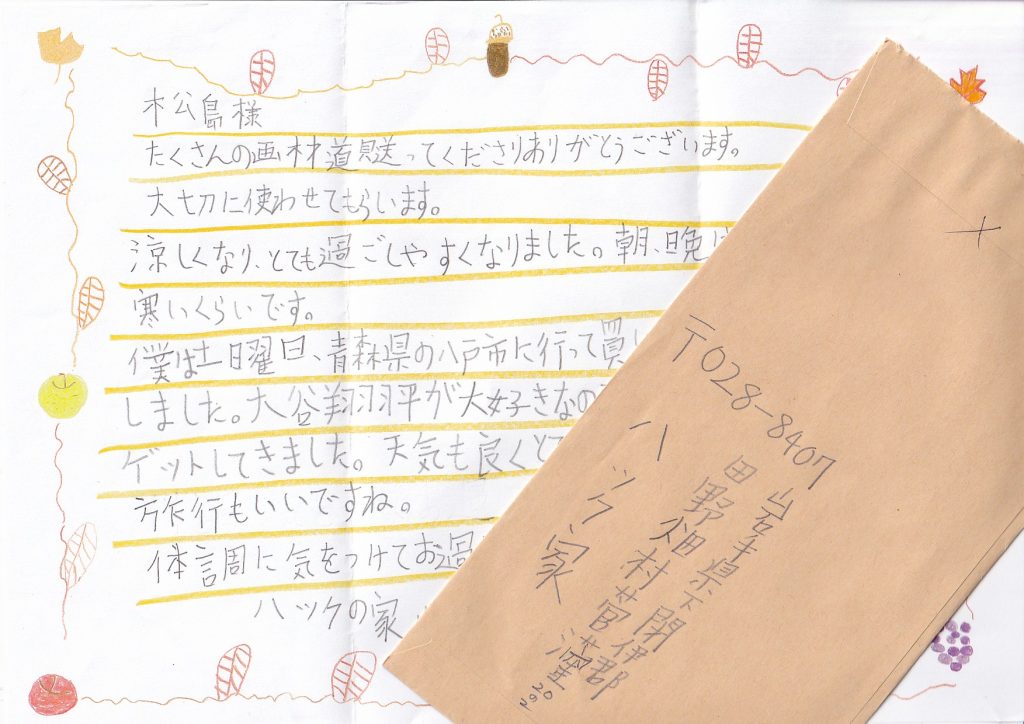 松島様
たくさんの画材道具送ってくださりありがとうございます。
大切に使わせてもらいます。
涼しくなり、とても過ごしやすくなりました。朝、晩は
寒いくらいです。
僕は土曜日、青森県の八戸市に行って買い
しました。大谷翔平が大好きなの
ゲットしてきました。天気も良くとて
旅行もいいですね。
体調に気をつけてお過
ハックの家
〒028-8407
岩手県下閉伊郡
田野畑村菅窪20
ハックの家